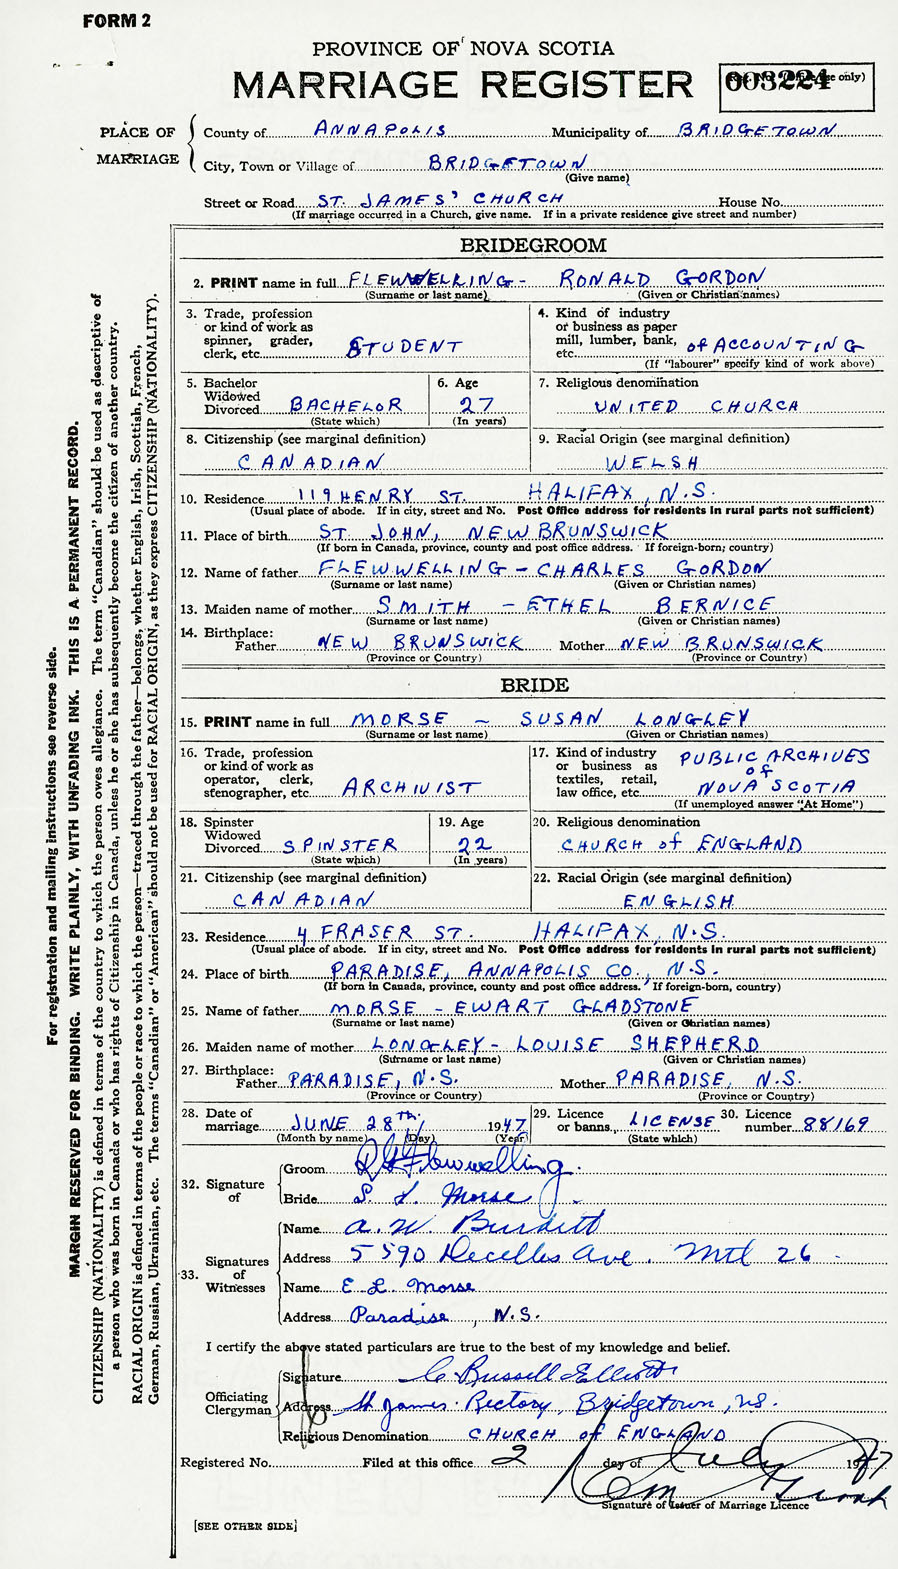 FORM 2
PROVINCE OF NOVA SCOTIA
MARRIAGE REGISTER
Reg. No. (Office use only)
003224
PLACE OF MARRIAGE
County of ANNAPOLIS Municipality of BRIDGETOWN
City, Town or Village of BRIDGETOWN
(Give name)
Street or Road ST. JAMES' CHURCH House No.
(If marriage occurred in a Church, give name. If in a private residence give street and number)
BRIDEGROOM
2. PRINT name in full FLEWWELLING - RONALD GORDON
(Surname or last name) (Given or Christian names)
3. Trade, profession or kind of work as spinner, grader, clerk, etc. STUDENT
4. Kind of industry or business as paper mill, lumber, bank, etc. of ACCOUNTING
(If "labourer" specify kind of work above)
5. Bachelor Widowed Divorced BACHELOR
(State which)
6. Age 27
(In years)
7. Religious denomination
UNITED CHURCH
8. Citizenship (see marginal definition)
CANADIAN
9. Racial Origin (see marginal definition)
WELSH
10. Residence 119 HENRY ST. HALIFAX, N.S.
(Usual place of abode. If in city, street and No. Post Office address for residents in rural parts not sufficient)
11. Place of birth ST. JOHN, NEW BRUNSWICK
(If born in Canada, province, county and post office address. If foreign-born, country)
12. Name of father FLEWWELLING - CHARLES GORDON
(Surname or last name) (Given or Christian names)
13. Maiden name of mother SMITH - ETHEL BERNICE
(Surname or last name) (Given or Christian names)
14. Birthplace:
Father NEW BRUNSWICK Mother NEW BRUNSWICK
(Province or Country) (Province or Country)
BRIDE
15. PRINT name in full MORSE - SUSAN LONGLEY
(Surname or last name) (Given or Christian names)
16. Trade, profession or kind of work as operator, clerk, stenographer, etc. ARCHIVIST
17. Kind of industry or business as textiles, retail, law office, etc. PUBLIC ARCHIVES of NOVA SCOTIA
(If unemployed answer "At Home")
18. Spinster Widowed Divorced SPINSTER
(State which)
19. Age 22
(In years)
20. Religious denomination
CHURCH of ENGLAND
21. Citizenship (see marginal definition)
CANADIAN
22. Racial Origin (see marginal definition)
ENGLISH
23. Residence 4 FRASER ST. HALIFAX, N.S.
(Usual place of abode. If in city, street and No. Post Office address for residents in rural parts not sufficient)
24. Place of birth PARADISE, ANNAPOLIS CO., N.S.
(If born in Canada, province, county and post office address. If foreign-born, country)
25. Name of father MORSE - EWART GLADSTONE
(Surname or last name) (Given or Christian names)
26. Maiden name of mother LONGLEY - LOUISE SHEPHERD
(Surname or last name) (Given or Christian names)
27. Birthplace:
Father PARADISE, N.S. Mother PARADISE, N.S.
(Province or Country) (Province or Country)
28. Date of marriage JUNE 28th. 1947
(Month by name) (Day) (Year)
29. Licence or banns. LICENSE
(State which)
30. Licence number 88169
32. Signature of
Groom R G Flewwelling.
Bride S. L. Morse
33. Signatures of Witnesses
Name A. W. Burdett
Address 5590 Decelles Ave. Mtl 26
Name E L Morse
Address Paradise, N.S.
I certify the above stated particulars are true to the best of my knowledge and belief.
Officiating Clergyman
Signature C Russell Elliott
Address St James Rectory, Bridgetown, N.S.
Religious Denomination CHURCH of ENGLAND
Registered No. Filed at this office 2 day of July 1947
Signature of Issuer of Marriage Licence
[SEE OTHER SIDE]
For registration and mailing instructions see reverse side.
MARGIN RESERVED FOR BINDING. WRITE PLAINLY, WITH UNFADING INK. THIS IS A PERMANENT RECORD.
CITIZENSHIP (NATIONALITY) is defined in terms of the country to which the person owes allegiance. The term "Canadian" should be used as descriptive of
a person who was born in Canada or who has rights of Citizenship in Canada, unless he or she has subsequently become the citizen of another country.
RACIAL ORIGIN is defined in terms of the people or race to which the person—traced through the father—belongs, whether English, Irish, Scottish, French,
German, Russian, Ukrainian, etc. The terms "Canadian" or "American" should not be used for RACIAL ORIGIN, as they express CITIZENSHIP (NATIONALITY).